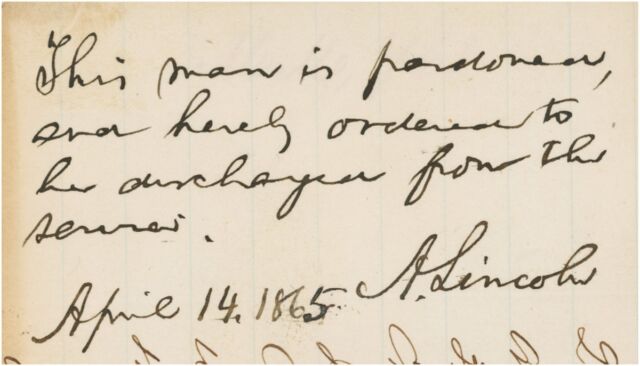 This man is pardoned,
and hereby ordered to
be discharged from the
service.
April 14. 1865 A. Lincoln